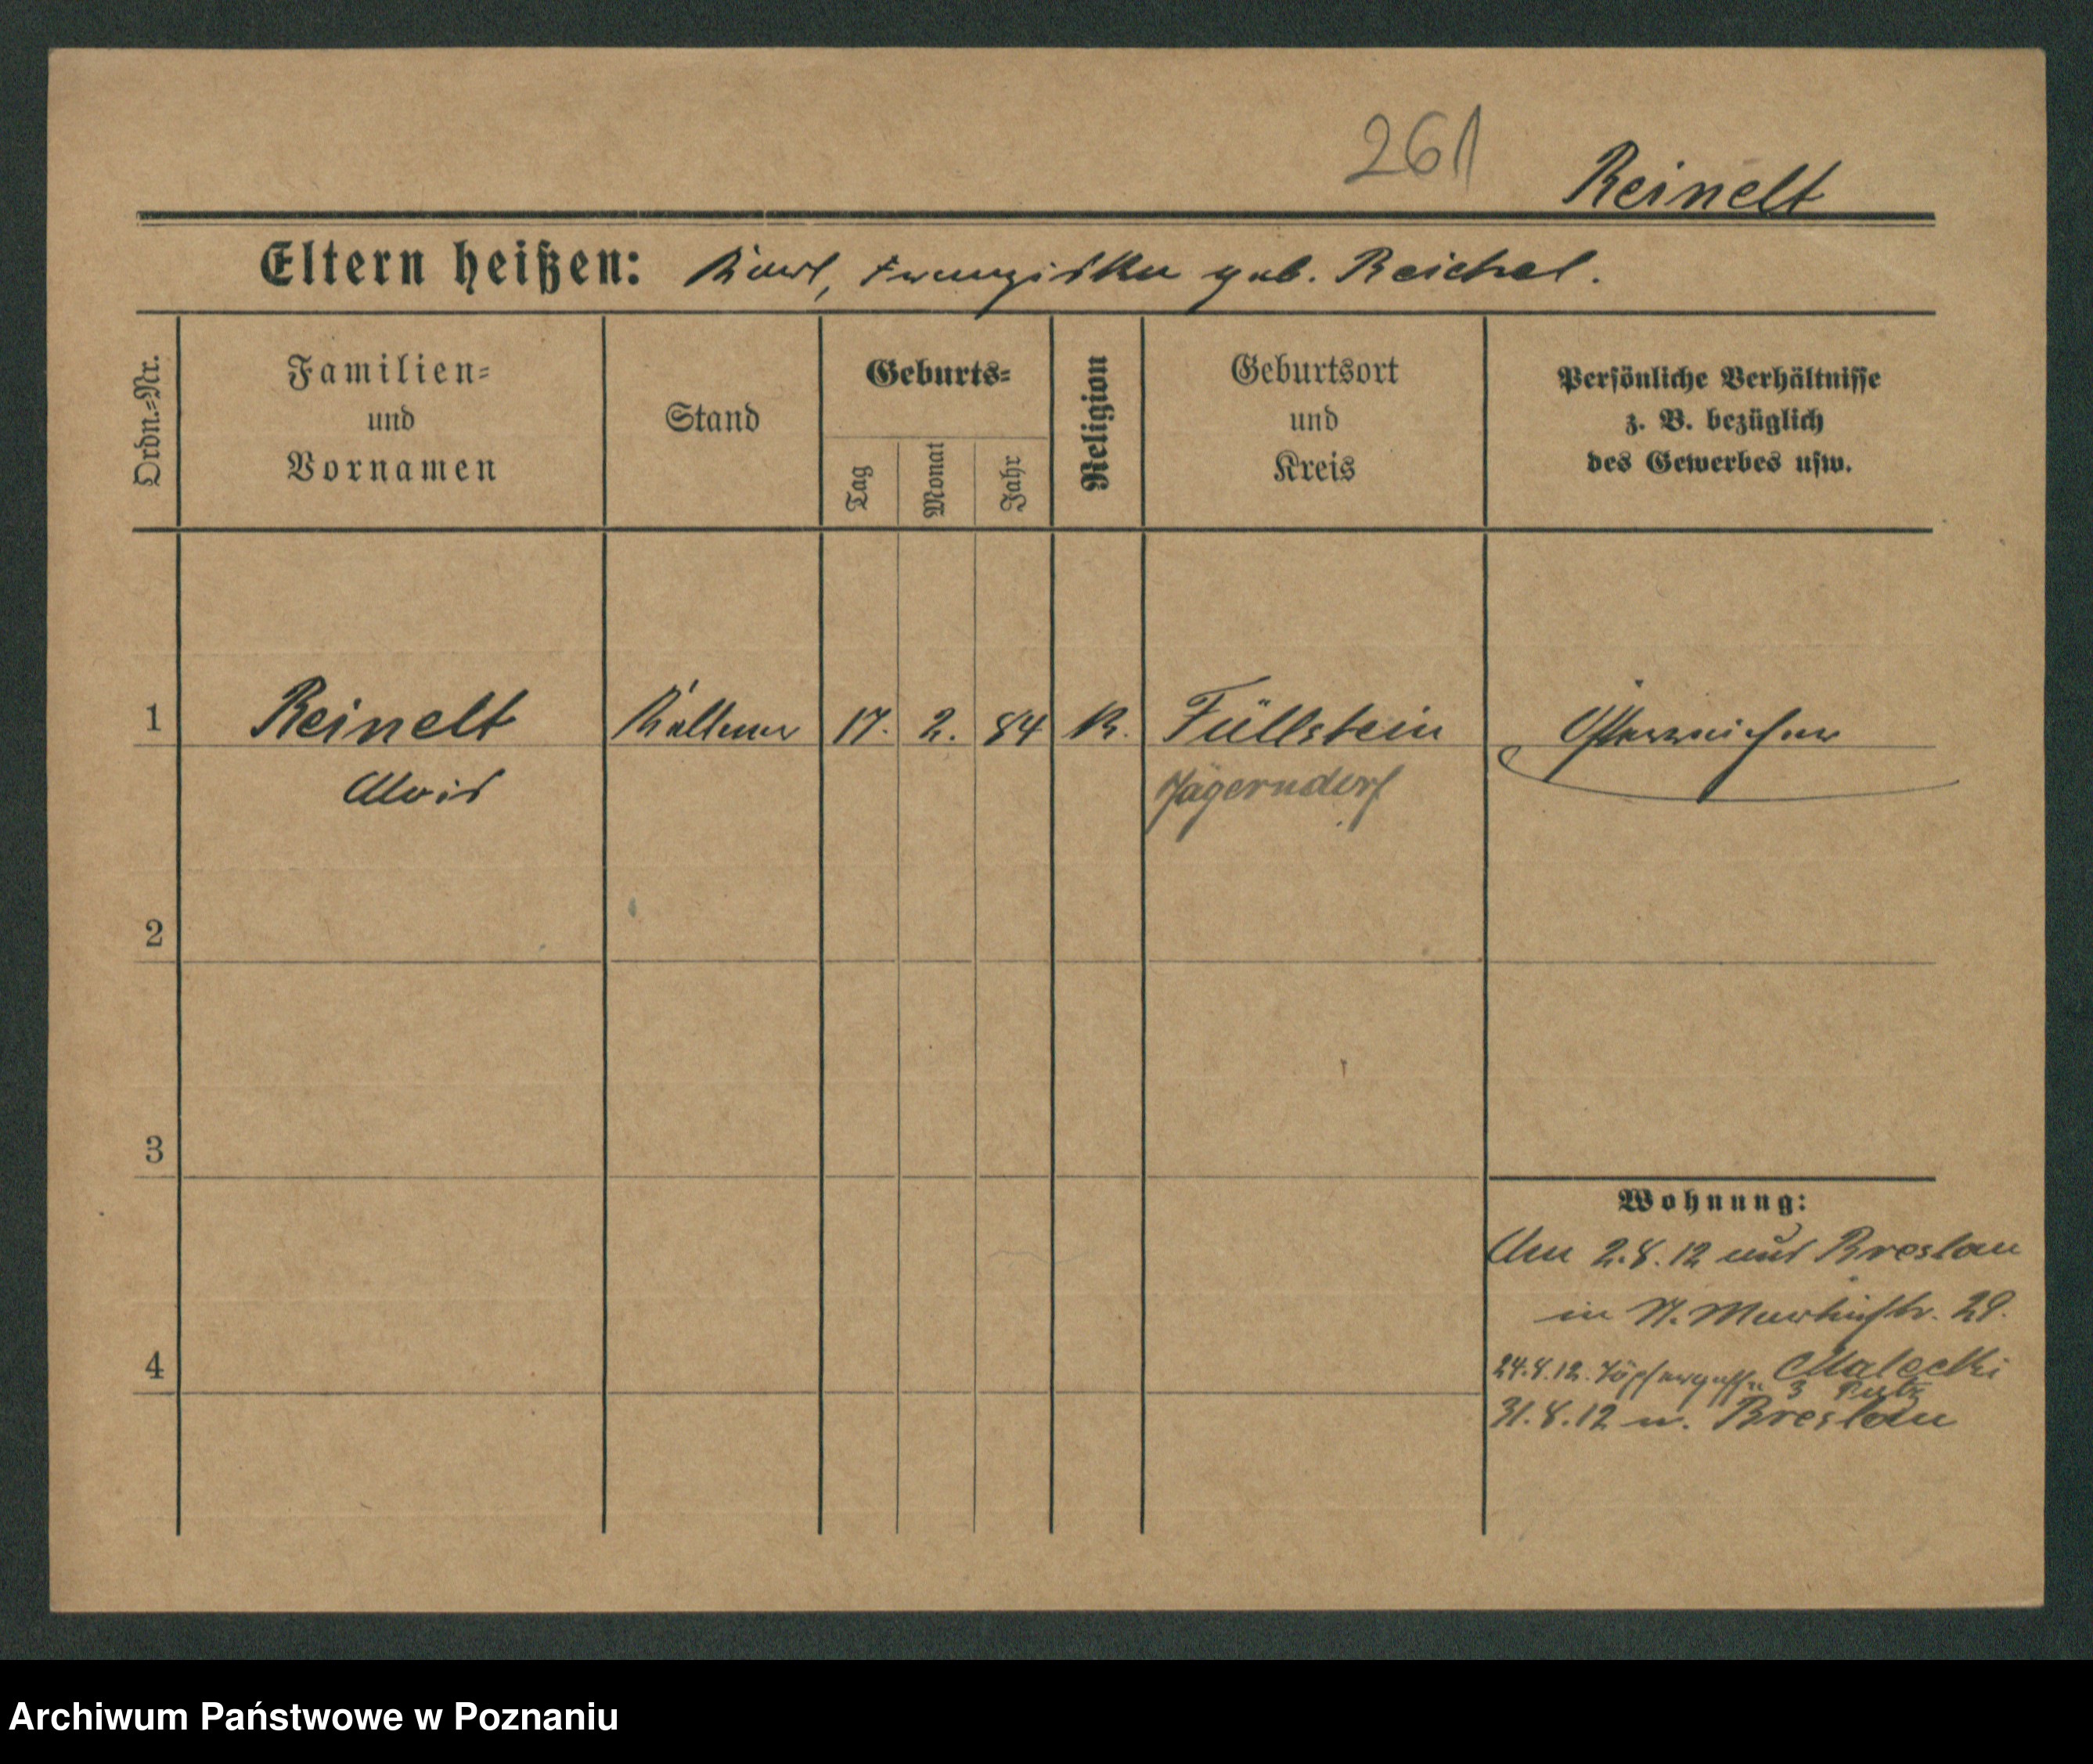 261
Reinelt
Eltern heißen: Karl, Franziska geb. Reichel.
Ordn.=Nr.
Familien=
und
Vornamen
Stand
Geburts=
Tag
Monat
Jahr
Religion
Geburtsort
und
Kreis
Persönliche Verhältnisse
z. B. bezüglich
des Gewerbes usw.
1 Reinelt Kellner 17. 2. 84 K. Füllstein Österreicher
Alois Jägerndorf
2
3
Wohnung:
An 2.8.12 aus Breslau
in St. Martinstr. 29.
4
24.8.12. Töpfergasse 3 Malecki
31.8.12 n. Breslau
Archiwum Państwowe w Poznaniu